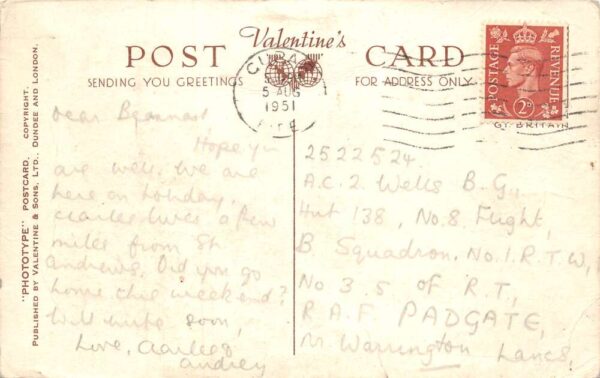 Valentine's
POST CARD
SENDING YOU GREETINGS
FOR ADDRESS ONLY
CUPAR
5 AUG
1951
FIFE
POSTAGE
REVENUE
2D
GT. BRITAIN
"PHOTOTYPE" POSTCARD. COPYRIGHT.
PUBLISHED BY VALENTINE & SONS, LTD., DUNDEE AND LONDON.
Dear
Hope you
are well. We are
here on holiday,
lives a few
miles from St
Andrews. Did you go
home this weekend?
Will write soon,
Love,
Audrey
2522524
A.C.2 Wells B.G.,
Hut 138, No.8 Flight,
B Squadron, No.1.R.T.W,
No 3 5 of R.T.,
R.A.F. PADGATE,
Nr. Warrington Lancs,